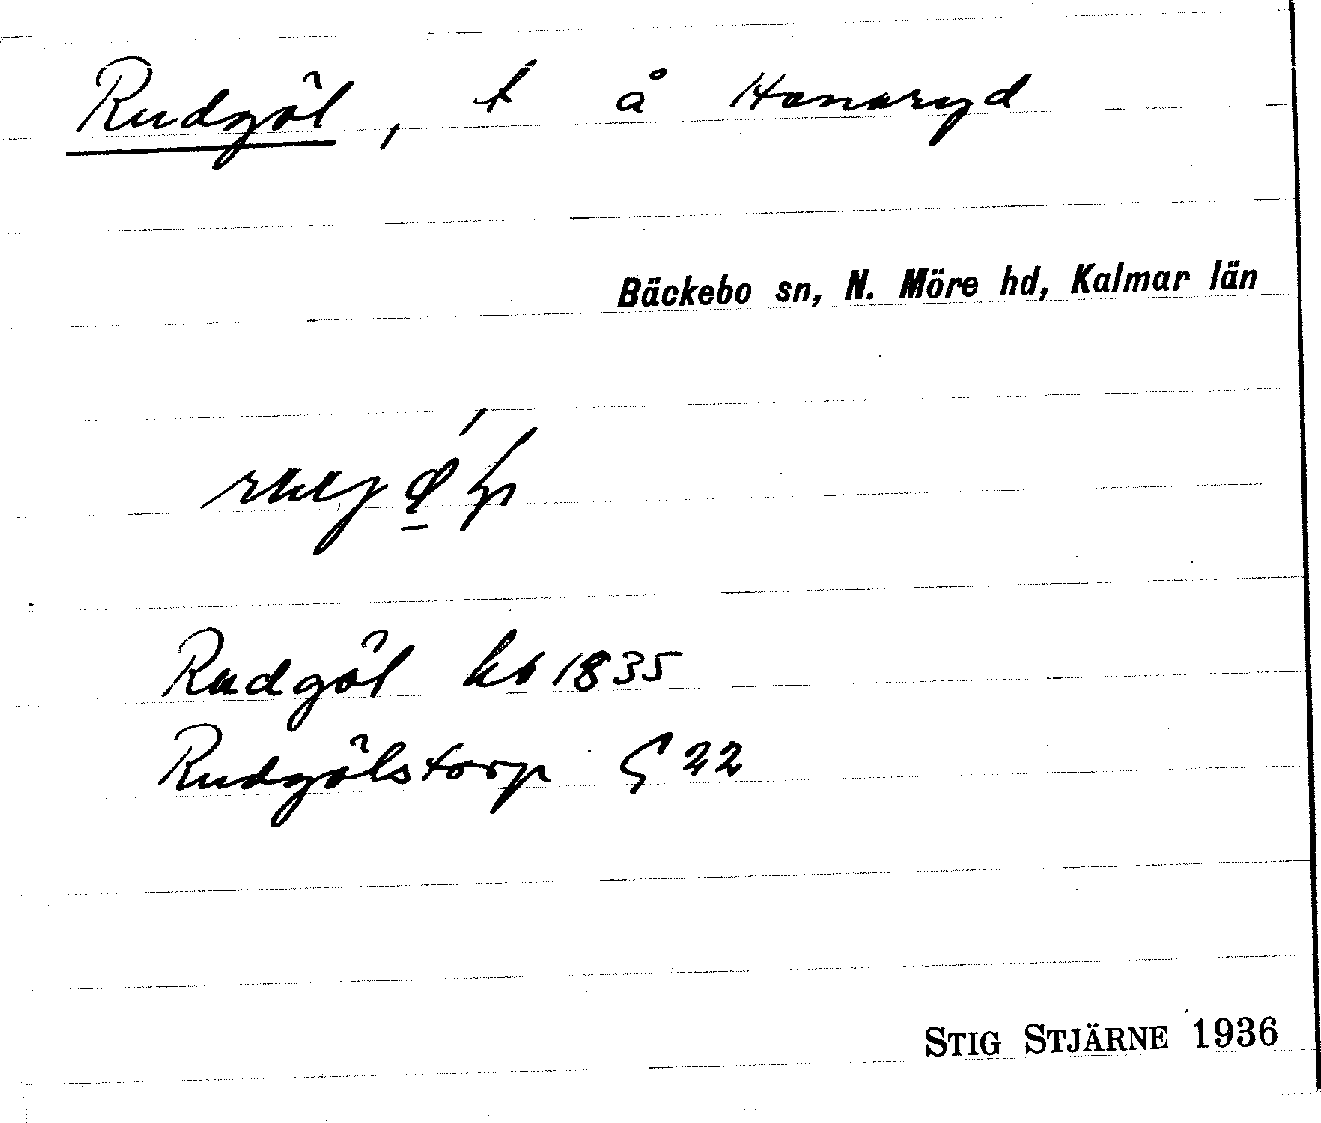 Rudgöl, t å Hanaryd
Bäckebo sn, N. Möre hd, Kalmar län
Rudgöl hb 1835
Rudgölstorp G 22
STIG STJÄRNE 1936